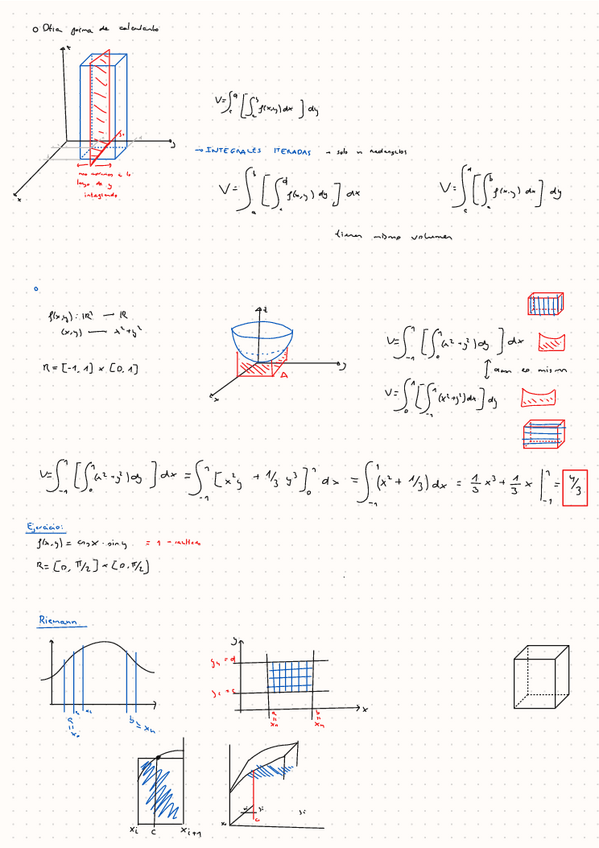 o Otra forma de calcularlo
z
y
x
nos movemos a lo
largo de y
integrando
V = ∫_c^d [ ∫_a^b f(x,y) dx ] dy
→ INTEGRALES ITERADAS → solo in rectangulos
V = ∫_a^b [ ∫_c^d f(x,y) dy ] dx
V = ∫_c^d [ ∫_a^b f(x,y) dx ] dy
tienen mismo volumen
f(x,y): ℝ² — ℝ
(x,y) — x²+y²
R = [-1, 1] × [0, 1]
z
y
x
V = ∫_{-1}^1 [ ∫_0^1 (x²+y²) dy ] dx
dan lo mismo
V = ∫_0^1 [ ∫_{-1}^1 (x²+y²) dx ] dy
V = ∫_{-1}^1 [ ∫_0^1 (x²+y²) dy ] dx = ∫_{-1}^1 [ x²y + 1/3 y³ ]_0^1 dx = ∫_{-1}^1 (x² + 1/3) dx = 1/3 x³ + 1/3 x |_{-1}^1 = 4/3
Ejercicio:
f(x,y) = cos x · sin y = 1
R = [0, π/2] × [0, π/2]
Riemann
y
x
x_i
c
x_{i+1}